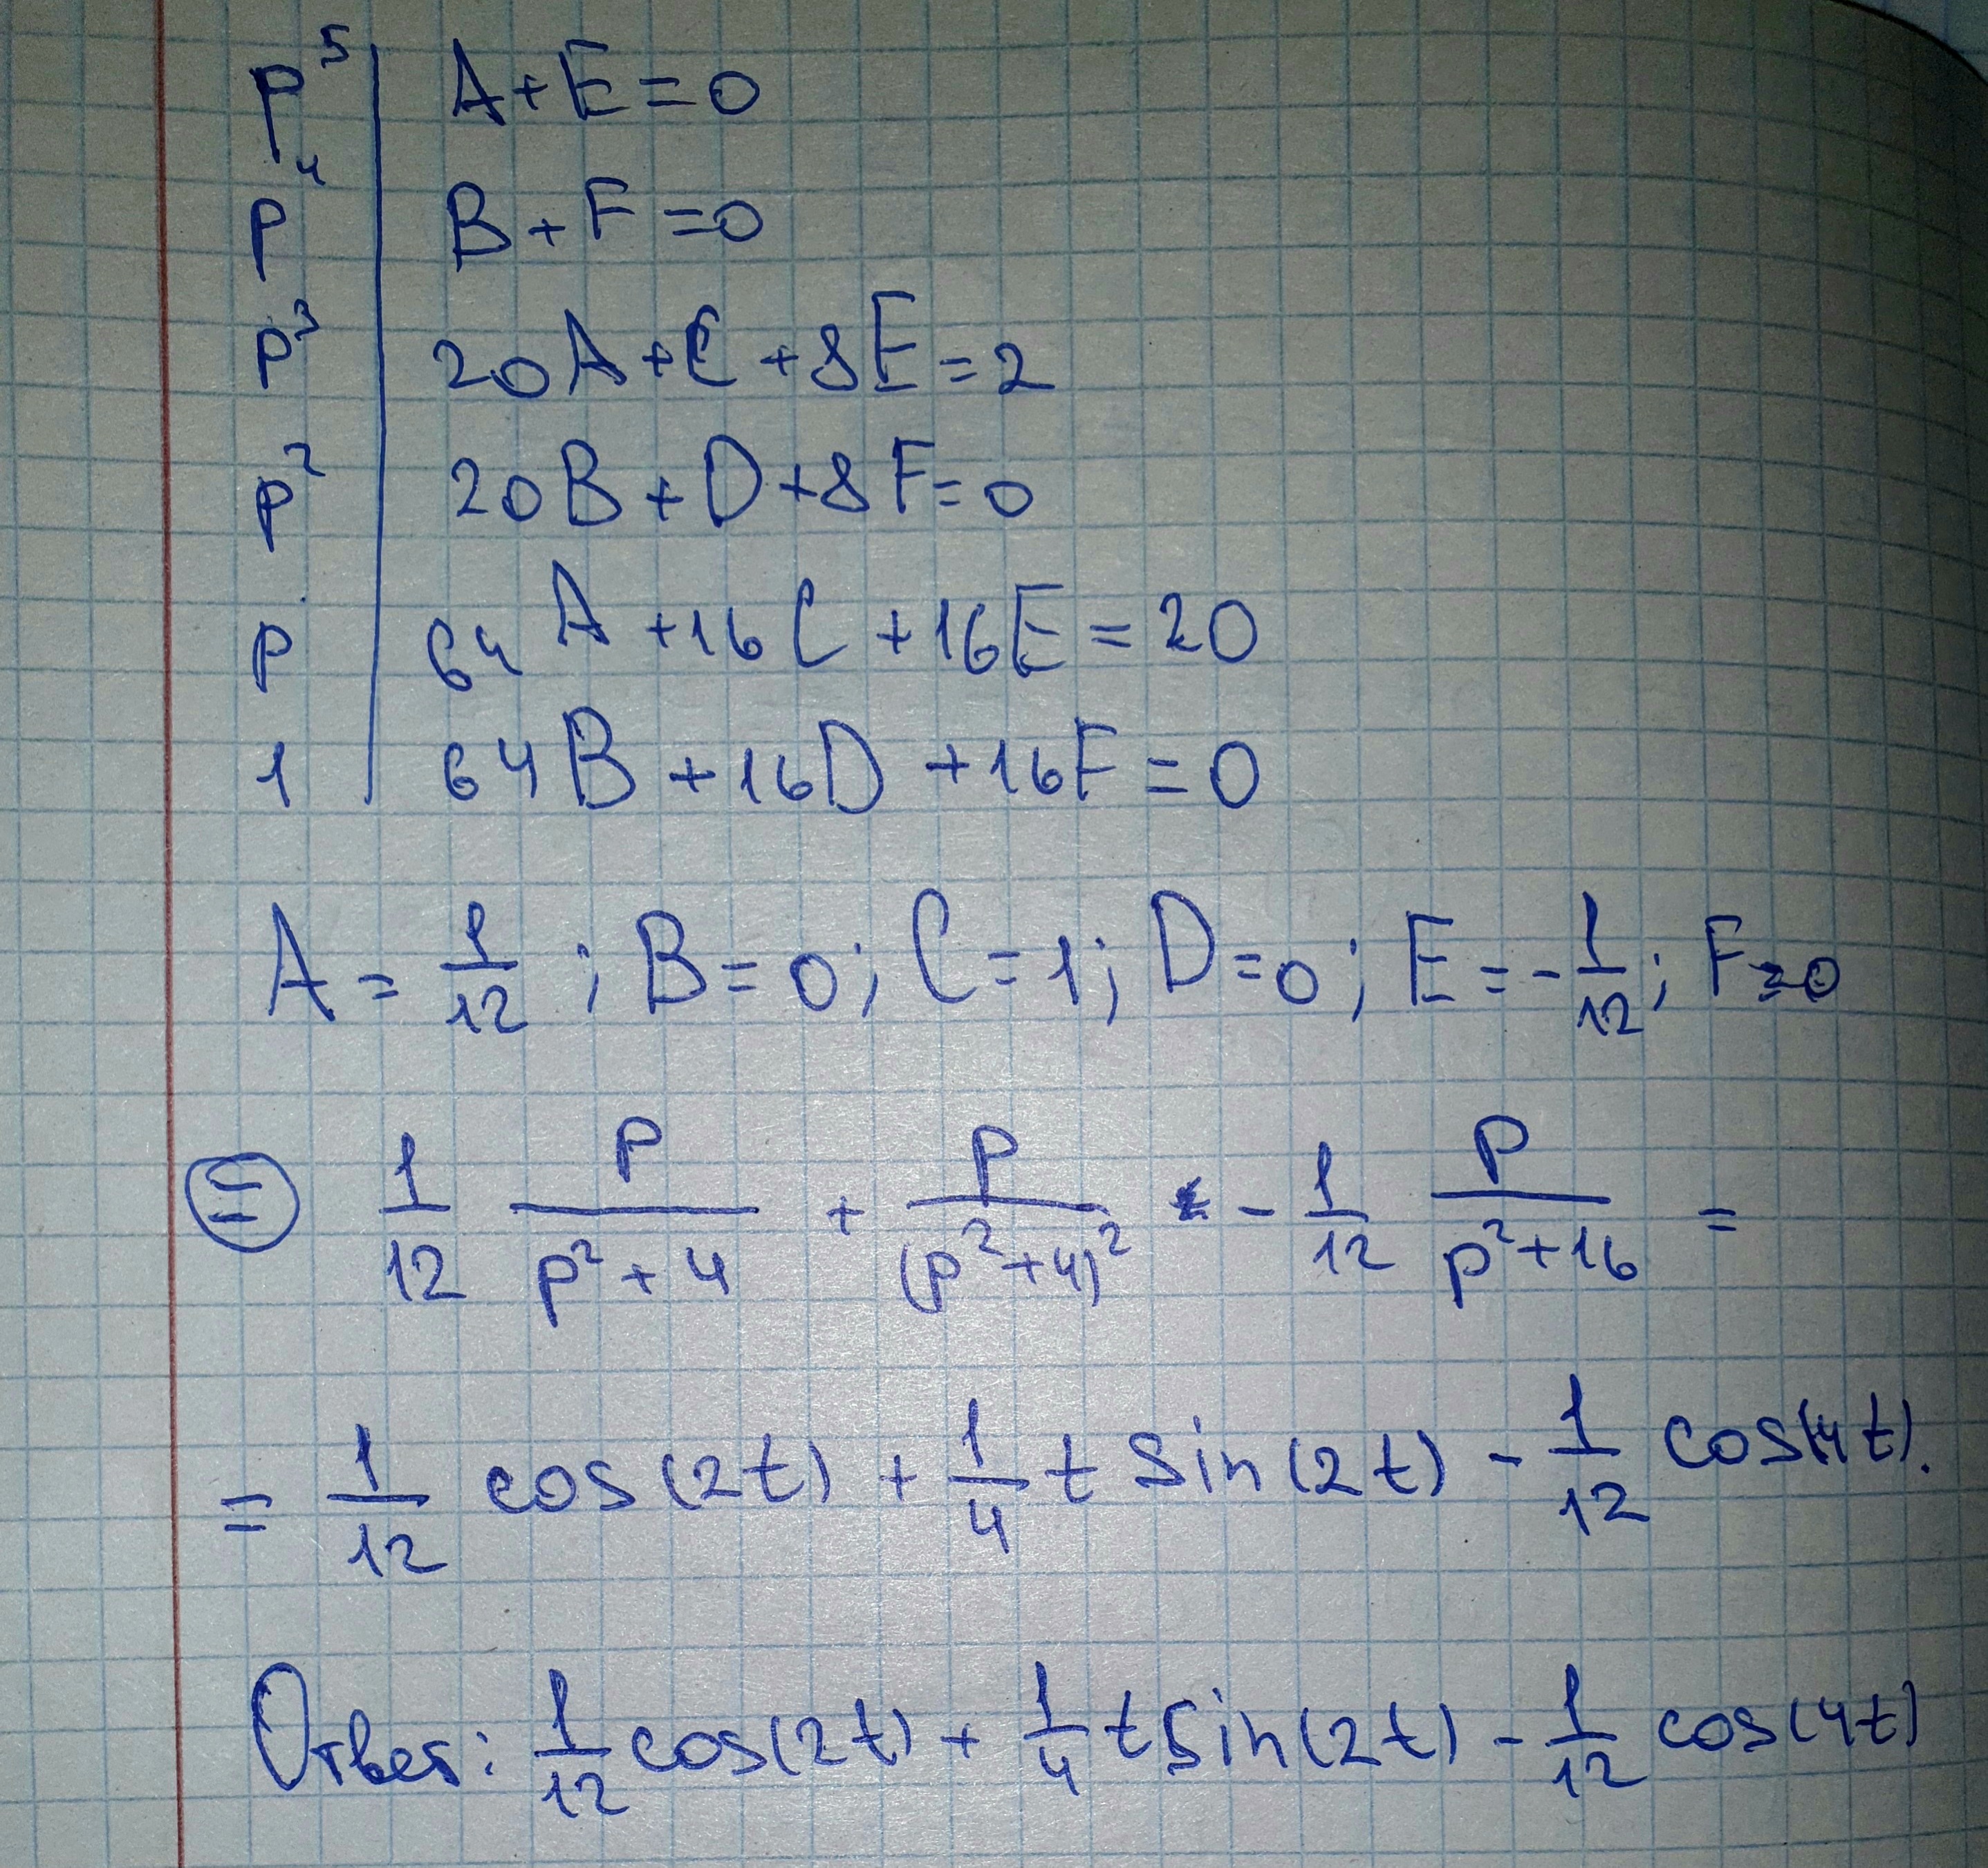 p⁵ | A+E=0
p⁴ | B+F=0
p³ | 20A+C+8E=2
p² | 20B+D+8F=0
p | 64A+16C+16E=20
1 | 64B+16D+16F=0
A=1/12; B=0; C=1; D=0; E=-1/12; F=0
= 1/12 p/(p²+4) + p/(p²+4)² - 1/12 p/(p²+16) =
= 1/12 cos(2t) + 1/4 t sin(2t) - 1/12 cos(4t).
Ответ: 1/12 cos(2t) + 1/4 t sin(2t) - 1/12 cos(4t)